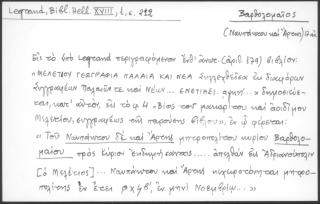 Legrand, Bibl. Hell. XVIII, 1, σ. 212
Βαρθολομαῖος
(Ναυπάκτου καὶ Ἄρτης) 17 αἰ.
Εἰς τὸ ὑπὸ Legrand περιγραφόμενον ἐνθ' ἀνωτ. (ἀριθ. 179) βιβλίον:
"ΜΕΛΕΤΙΟΥ ΓΕΩΓΡΑΦΙΑ ΠΑΛΑΙΑ ΚΑΙ ΝΕΑ συλλεχθεῖσα ἐκ διαφόρων
συγγραφέων Παλαιῶν τε καὶ Νέων... ΕΝΕΤΙΗΣΙ. αψκη'... " δημοσιεύε-
ται, κατ' αὐτόν, εἰς τὸ φ. 4 "Βίος τοῦ μακαρίτου καὶ ἀοιδίμου
Μελετίου, συγγραφέως τῆς παρούσης βίβλου", ἐν ᾧ φέρεται:
"Τοῦ Ναυπάκτου δὲ καὶ Ἄρτης μητροπολίτου κυρίου Βαρθολο-
μαίου πρὸς Κύριον ἐκδημήσαντος ..... ἀπελθὼν εἰς Ἀδριανούπολιν
[ὁ Μελέτιος]... Ναυπάκτου καὶ Ἄρτης κεχειροτόνηται μητρο-
πολίτης ἐν ἔτει αχϟβ', ἐν μηνὶ Νοεμβρίῳ..."